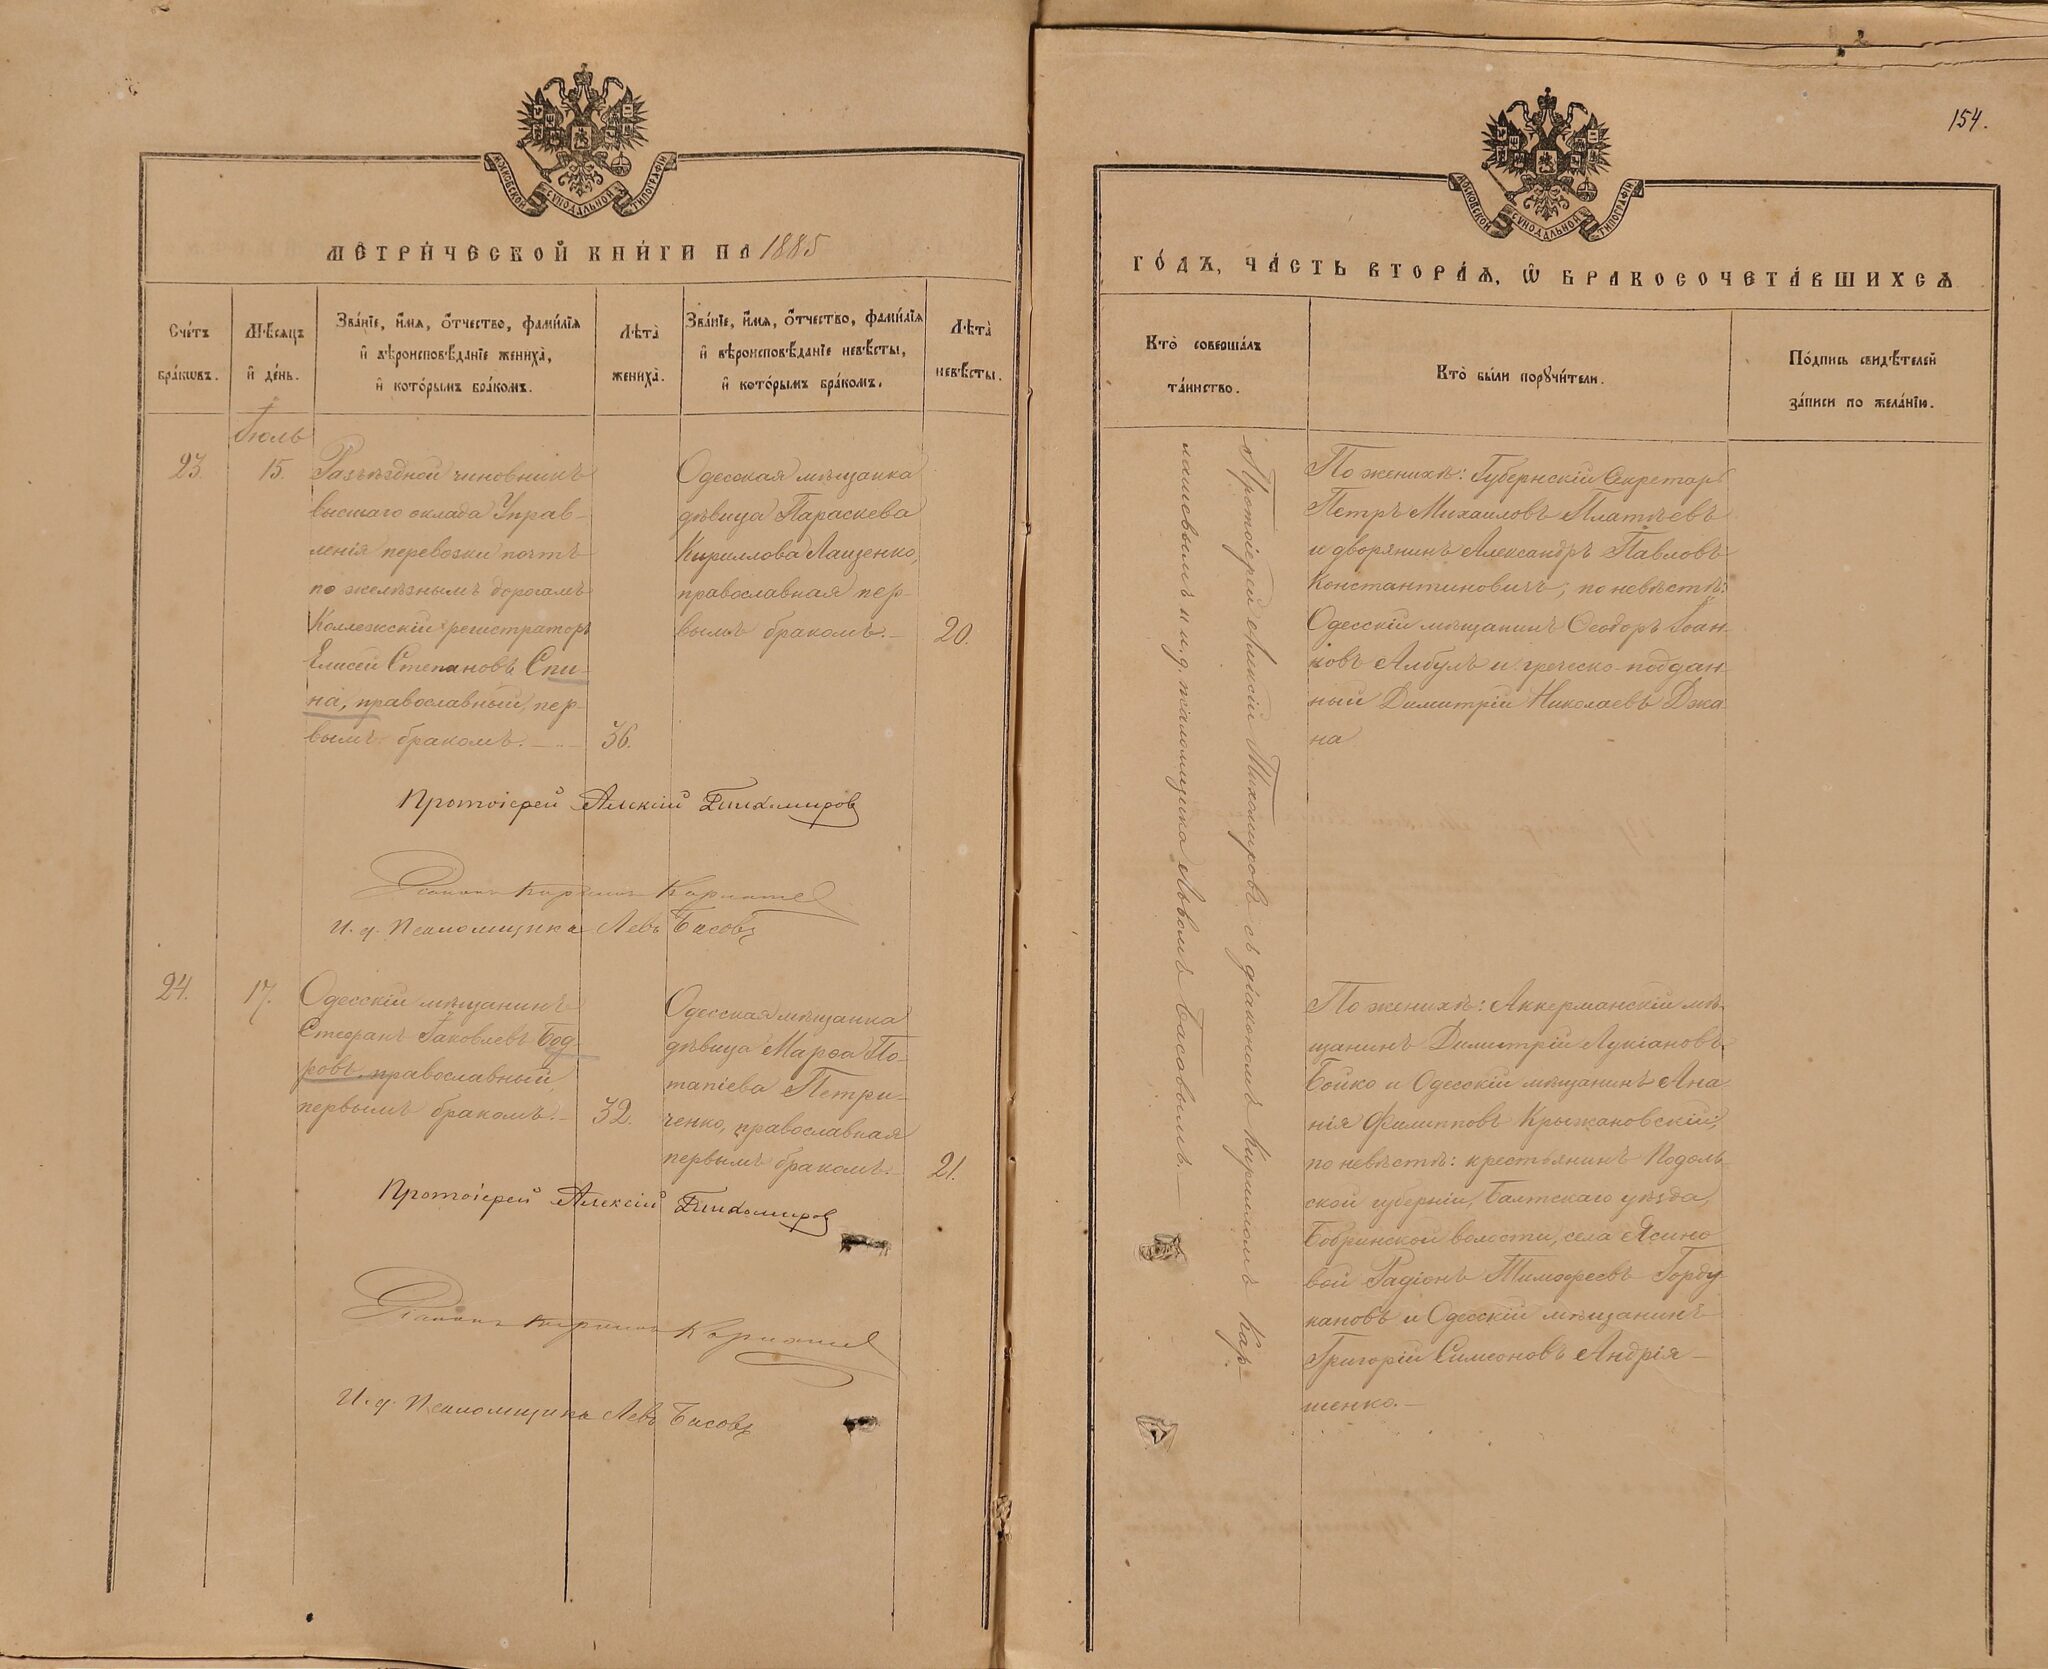 МОСКОВСКОЙ СѴНОДАЛЬНОЙ ТИПОГРАФІИ
МЕТРИЧЕСКОЙ КНИГИ НА 1885
Счетъ браковъ.
Мѣсяцъ и день.
Званіе, имя, отчество, фамилія и вѣроисповѣданіе жениха, и которымъ бракомъ.
Лѣта жениха.
Званіе, имя, отчество, фамилія и вѣроисповѣданіе невѣсты, и которымъ бракомъ.
Лѣта невѣсты.
Іюль
23.
15.
Разъѣздной чиновникъ
высшаго оклада Управ-
ленія перевозки почтъ
по желѣзнымъ дорогамъ
Коллежскій регистраторъ
Елисей Степановъ Спи-
на, православный, пер-
вымъ бракомъ.
36.
Одесская мѣщанка
дѣвица Параскева
Кириллова Лащенко,
православная пер-
вымъ бракомъ.
20.
Протоіерей Алексій Тихомировъ
Діаконъ Кириллъ
И. д. Псаломщика Левъ Басовъ
24.
17.
Одесскій мѣщанинъ
Стефанъ Іаковлевъ Бод-
ровъ, православный,
первымъ бракомъ.
32.
Одесская мѣщанка
дѣвица Марѳа По-
тапіева Петри-
ченко, православная
первымъ бракомъ.
21.
Протоіерей Алексій Тихомировъ
Діаконъ Кириллъ
И. д. Псаломщика Левъ Басовъ
154.
МОСКОВСКОЙ СѴНОДАЛЬНОЙ ТИПОГРАФІИ
ГОДЪ, ЧАСТЬ ВТОРАЯ, Ѡ БРАКОСОЧЕТАВШИХСЯ
Кто совершалъ таинство.
Кто были поручители.
Подпись свидѣтелей записи по желанію.
Протоіерей Алексій Тихомировъ съ діакономъ Кирилломъ Кар-
и и. д. псаломщика Львомъ Басовымъ.
По женихѣ: Губернскій Секретарь
Петръ Михаиловъ Платѣевъ
и дворянинъ Александръ Павловъ
Константиновичъ; по невѣстѣ:
Одесскій мѣщанинъ Ѳеодоръ Іоан-
новъ Албулъ и греческо-поддан-
ный Димитрій Николаевъ Джа-
на
По женихѣ: Аккерманскій мѣ-
щанинъ Димитрій Лукіановъ
Бойко и Одесскій мѣщанинъ Ана-
нія Филипповъ Крыжановскій;
по невѣстѣ: крестьянинъ Подоль-
ской губерніи, Балтскаго уѣзда,
Бобринской волости, села Ясино-
вой Радіонъ Тимофеевъ Горду-
кановъ и Одесскій мѣщанинъ
Григорій Симеоновъ Андрія-
шенко.